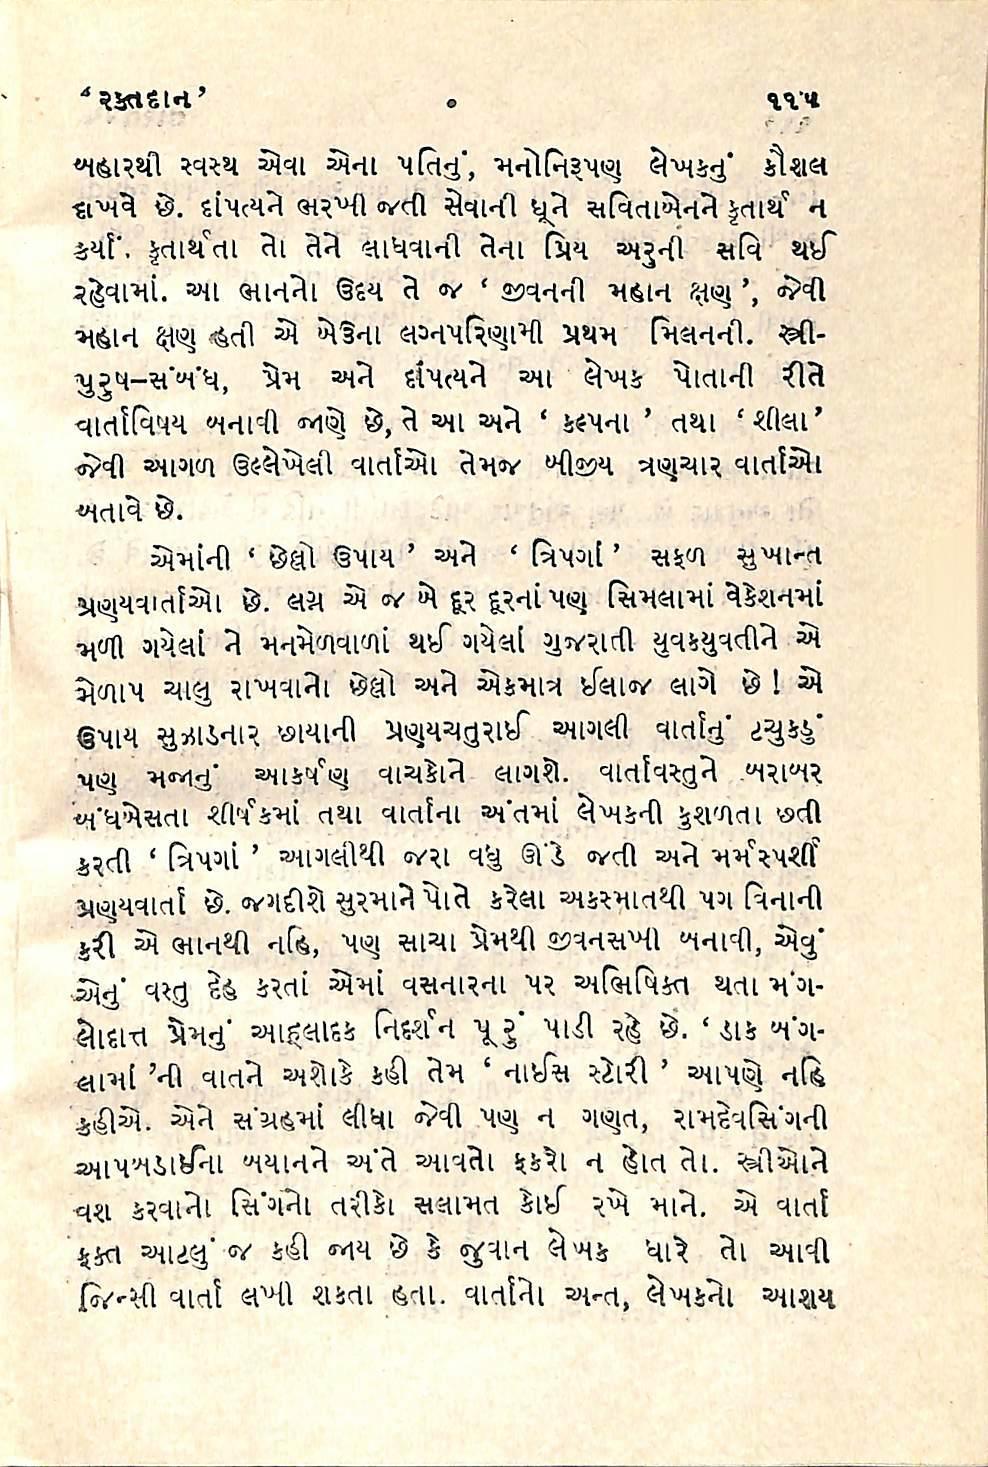 ‘રક્તદાન’ ૦ ૧૧૫
બહારથી સ્વસ્થ એવા એના પતિનું, મનોનિરૂપણ લેખકનું કૌશલ
દાખવે છે. દાંપત્યને ભરખી જતી સેવાની ધૂને સવિતાબેનને કૃતાર્થ ન
કર્યાં. કૃતાર્થતા તો તેને લાધવાની તેના પ્રિય અરુની સવિ થઈ
રહેવામાં. આ ભાનનો ઉદય તે જ ‘ જીવનની મહાન ક્ષણ’, જેવી
મહાન ક્ષણ હતી એ બેઉના લગ્નપરિણામી પ્રથમ મિલનની. સ્ત્રી-
પુરુષ–સંબંધ, પ્રેમ અને દાંપત્યને આ લેખક પોતાની રીતે
વાર્તાવિષય બનાવી જાણે છે, તે આ અને ‘ કલ્પના ’ તથા ‘ શીલા’
જેવી આગળ ઉલ્લેખેલી વાર્તાઓ તેમજ બીજીય ત્રણચાર વાર્તાઓ
બતાવે છે.
એમાંની ‘ છેલ્લો ઉપાય ’ અને ‘ ત્રિપગાં ’ સફળ સુખાન્ત
પ્રણયવાર્તાઓ છે. લગ્ન એ જ બે દૂર દૂરનાં પણ સિમલામાં વેકેશનમાં
મળી ગયેલાં ને મનમેળવાળાં થઈ ગયેલાં ગુજરાતી યુવકયુવતીને એ
મેળાપ ચાલુ રાખવાનો છેલ્લો અને એકમાત્ર ઈલાજ લાગે છે! એ
ઉપાય સુઝાડનાર છાયાની પ્રણયચતુરાઈ આગલી વાર્તાનું ટચુકડું
પણ મજાનું આકર્ષણ વાચકોને લાગશે. વાર્તાવસ્તુને બરાબર
બંધબેસતા શીર્ષકમાં તથા વાર્તાના અંતમાં લેખકની કુશળતા છતી
કરતી ‘ ત્રિપગાં ’ આગલીથી જરા વધુ ઊંડે જતી અને મર્મસ્પર્શી
પ્રણયવાર્તા છે. જગદીશે સુરમાને પોતે કરેલા અકસ્માતથી પગ વિનાની
કરી એ ભાનથી નહિ, પણ સાચા પ્રેમથી જીવનસખી બનાવી, એવું
એનું વસ્તુ દેહ કરતાં એમાં વસનારના પર અભિષિક્ત થતા મંગ-
લોદાત્ત પ્રેમનું આહ્‌લાદક નિદર્શન પૂરું પાડી રહે છે. ‘ ડાક બંગ-
લામાં ’ની વાતને અશોકે કહી તેમ ‘ નાઈસ સ્ટોરી ’ આપણે નહિ
કહીએ. એને સંગ્રહમાં લીધા જેવી પણ ન ગણત, રામદેવસિંગની
આપબડાઈના બયાનને અંતે આવતો ફકરો ન હોત તો. સ્ત્રીઓને
વશ કરવાનો સિંગનો તરીકો સલામત કોઈ રખે માને. એ વાર્તા
ફક્ત આટલું જ કહી જાય છે કે જુવાન લેખક ધારે તો આવી
જિન્સી વાર્તા લખી શકતા હતા. વાર્તાનો અન્ત, લેખકનો આશય